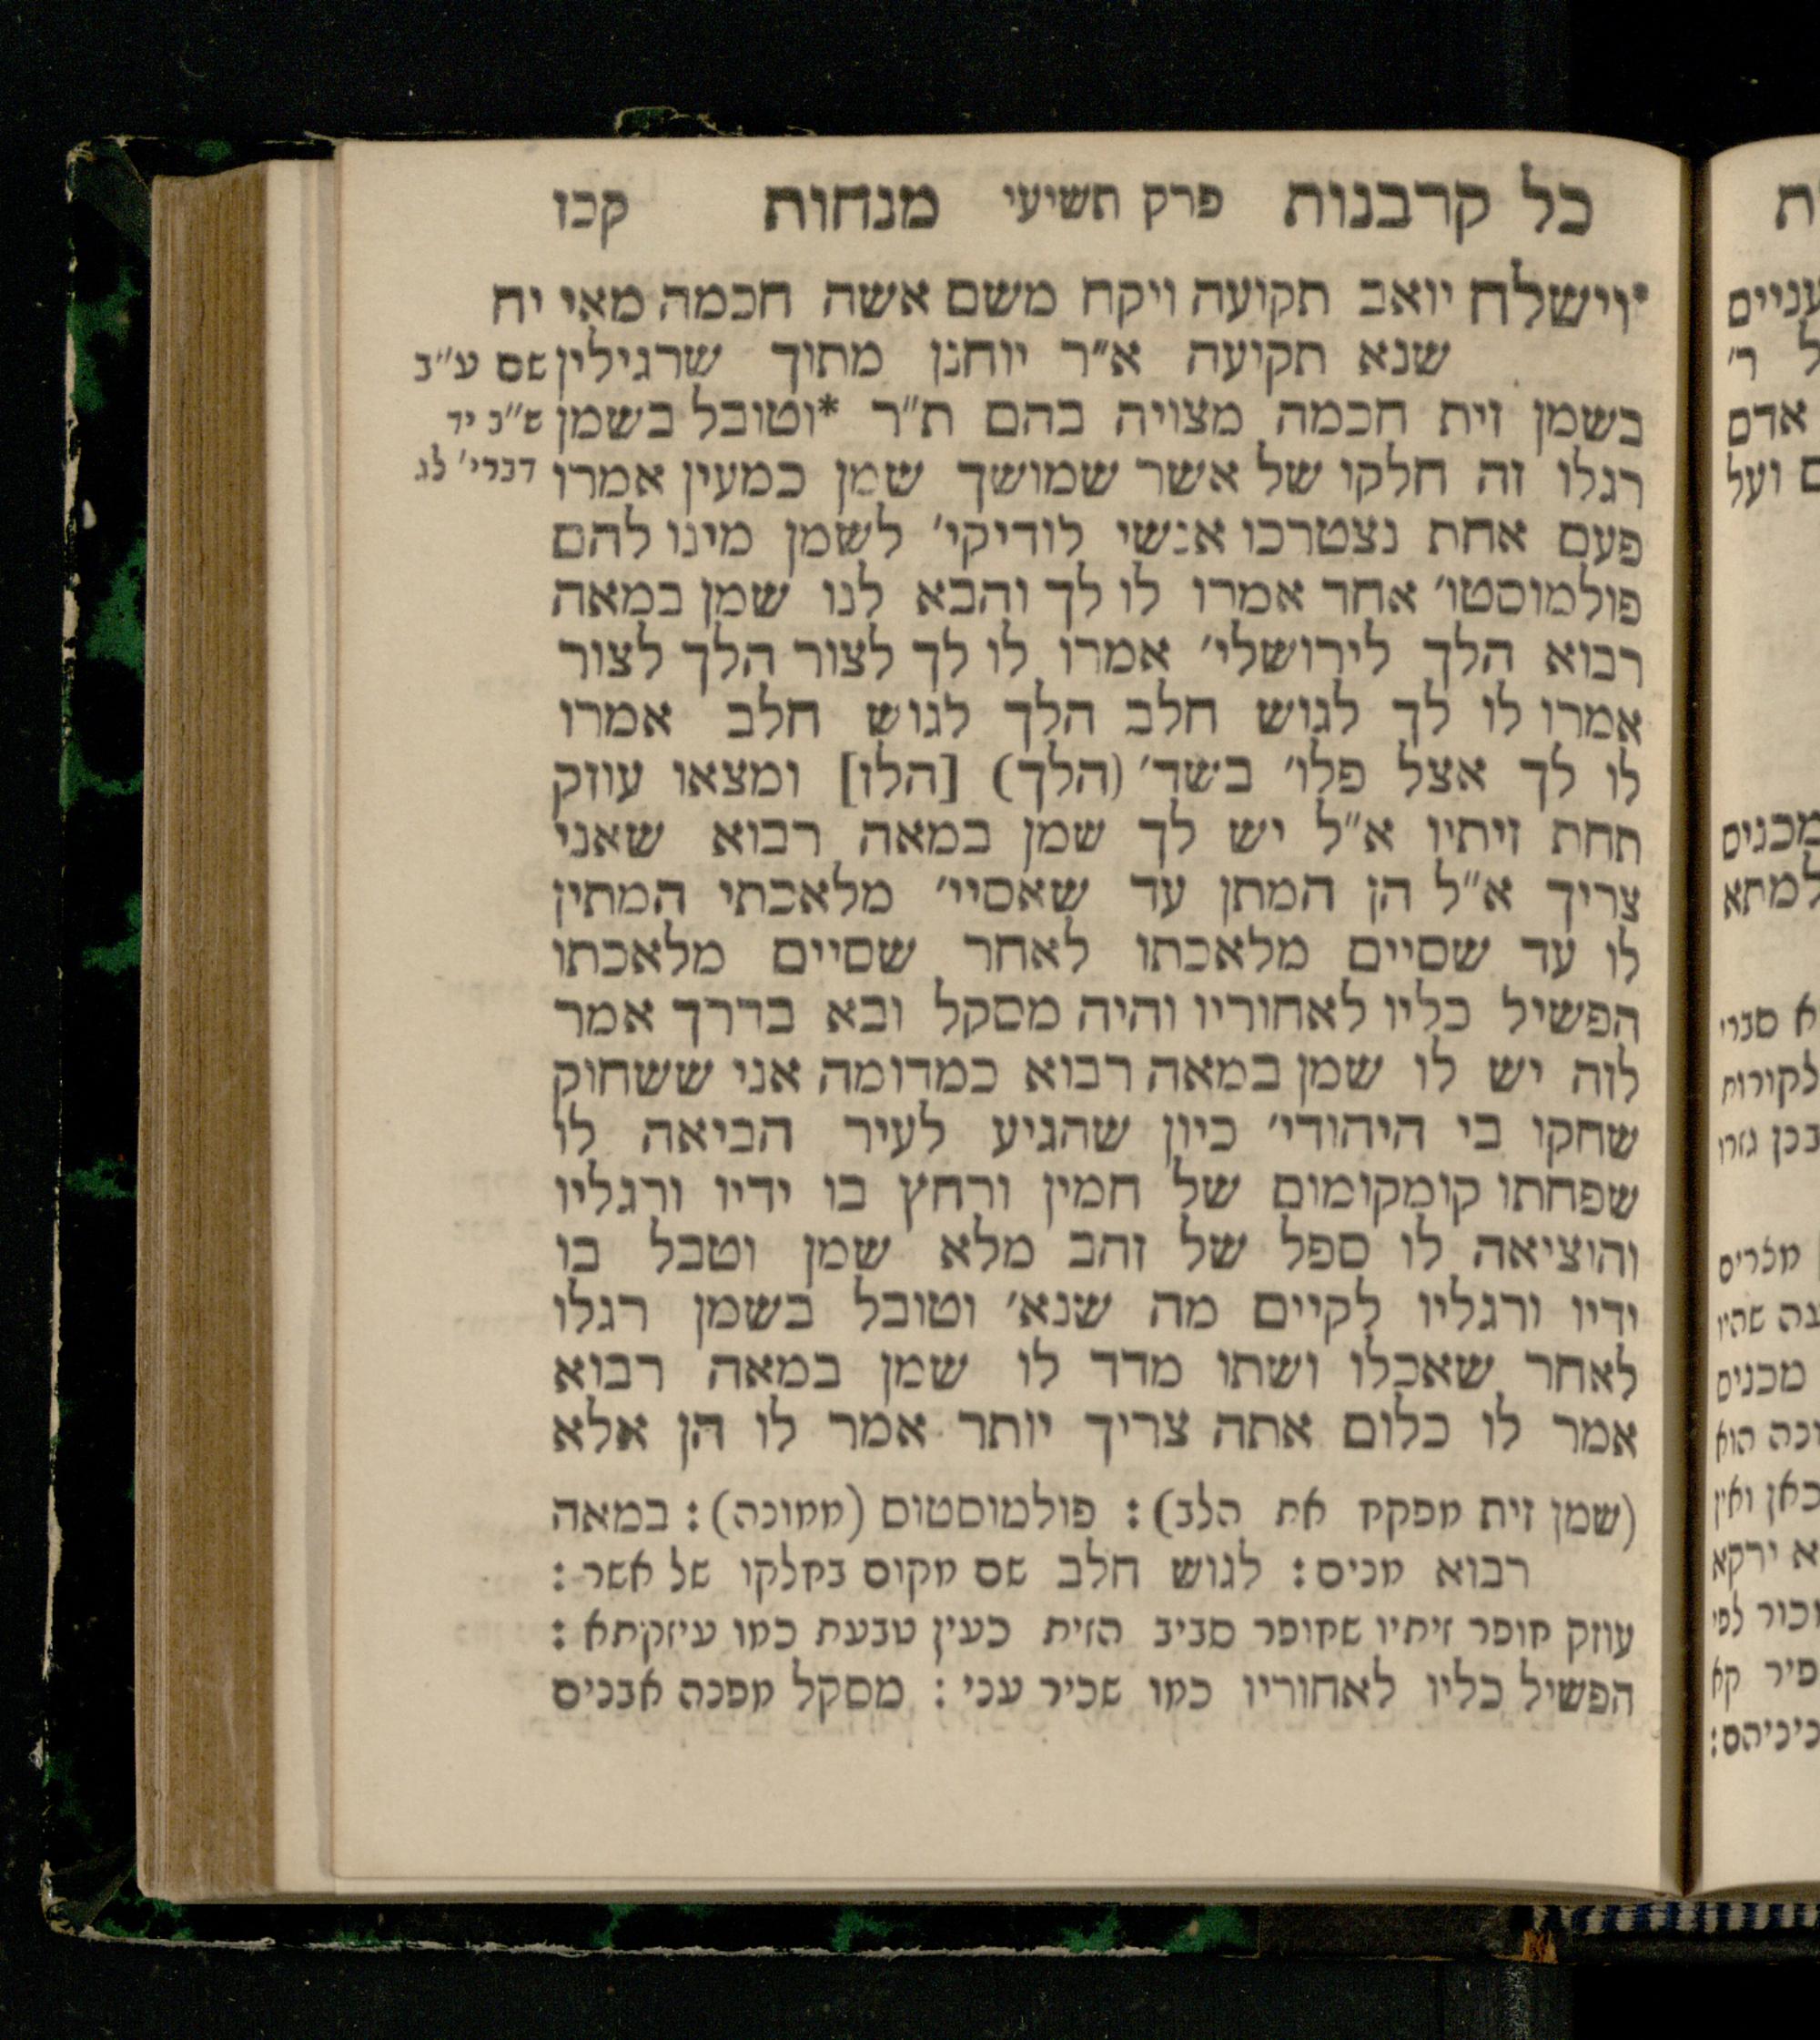 כל קרבנות פרק תשיעי מנחות קכז
*וישלח יואב תקועה ויקח משם אשה חכמה מאי יח
שנא תקועה א"ר יוחנן מתוך שרגילין שם ע"ב
בשמן זית חכמה מצויה בהם ת"ר *וטובל בשמן ש"ב יד
רגלו זה חלקו של אשר שמושך שמן כמעין אמרו דברי' לג
פעם אחת נצטרכו אנשי לודיקי' לשמן מינו להם
פולמוסטו' אחד אמרו לו לך והבא לנו שמן במאה
רבוא הלך לירושלי' אמרו לו לך לצור הלך לצור
אמרו לו לך לגוש חלב הלך לגוש חלב אמרו
לו לך אצל פלו' בשד' (הלך) [הלז] ומצאו עוזק
תחת זיתיו א"ל יש לך שמן במאה רבוא שאני
צריך א"ל הן המתן עד שאסיי' מלאכתי המתין
לו עד שסיים מלאכתו לאחר שסיים מלאכתו
הפשיל כליו לאחוריו והיה מסקל ובא בדרך אמר
לזה יש לו שמן במאה רבוא כמדומה אני ששחוק
שחקו בי היהודי' כיון שהגיע לעיר הביאה לו
שפחתו קומקומום של חמין ורחץ בו ידיו ורגליו
והוציאה לו ספל של זהב מלא שמן וטבל בו
ידיו ורגליו לקיים מה שנא' וטובל בשמן רגלו
לאחר שאכלו ושתו מדד לו שמן במאה רבוא
אמר לו כלום אתה צריך יותר אמר לו הן אלא
(שמן זית מפקח את הלב): פולמוסטום (ממונה): במאה
רבוא מנים: לגוש חלב שם מקום בחלקו של אשר:
עוזק חופר זיתיו שחופר סביב הזית כעין טבעת כמו עיזקתא:
הפשיל כליו לאחוריו כמו שכיר עני: מסקל מפנה אבנים
ת
עניים
ל ר'
אדם
ם ועל
מכנים
למתא
א סברי
לקורות
בכן גזרו
מכנים
כאן ואין
א ירקא